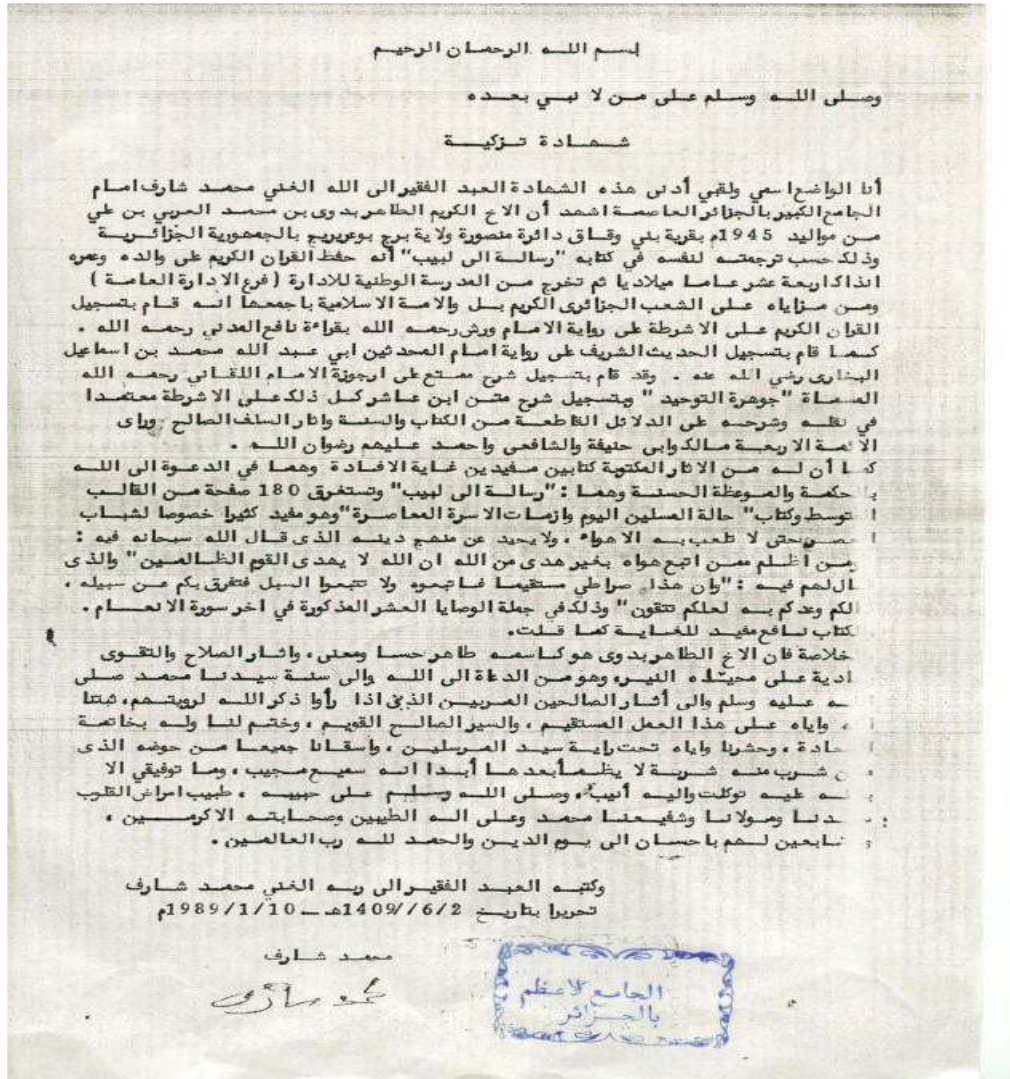 بسم اللــه الرحمــان الرحيــم
وصــلى اللــه وسـلم عـلى مــن لا نبــي بعــده
شــهــادة تــزكيــة
أنا الواضع اسمي ولقبي أدنى هذه الشهادة العبد الفقير الى الله الغني محمـد شارف امـام
الجامع الكبير بالجزائر العاصمـة اشهد أن الاخ الكريم الطاهر بدوى بن محمـد العربي بن علي
مــن مواليد 1945م بقرية بني وقـاق دائرة منصورة ولاية برج بوعريريج بالجمهورية الجزائــريـة
وذلك حسب ترجمتــه لنفسـه في كتابه "رسالــة الى لبيب" أنه حفظ القران الكريم على والده وعمره
انذاك اربعـة عشر عـامـا ميلاديا ثم تخرج مــن المدرسة الوطنية للادارة ( فرع الادارة العامـة )
ومـن مـزاياه عـلى الشعب الجزائرى الكريم بـل والامـة الاسلامية باجمعها انـه قـام بتسجيل
القران الكريم عـلى الاشرطة على رواية الامـام ورش رحمـه الله بقراءة نافع المدني رحمـه الله .
كـمـا قام بتسجيل الحديث الشريف على رواية امـام المحدثين ابي عـبد الله محمـد بن اسماعيل
البخارى رضي اللـه عنـه . وقد قام بتسجيل شرح ممـتع على ارجوزة الامـام اللقـاني رحمـه الله
المسمـاة "جوهرة التوحيد " وبتسجيل شرح متـن ابن عـاشر كـل ذلك عـلى الاشرطة معتمـدا
في نقلــه وشرحـه على الدلائل القاطعـة مـن الكتاب والسنـة واثار السلف الصالح وراى
الائمـة الاربعـة مـالك وابي حنيفة والشافعى واحمـد عـليهم رضوان اللــه .
كمـا أن لــه مـن الاثار المكتوبة كتابين مـفيدين غـاية الافـادة وهمـا في الدعـوة الى اللــه
بالحكمـة والمـوعظة الحسنـة وهمـا : "رسالــة الى لبيب" وتستغرق 180 صفحة مـن القالـب
المتوسط وكتاب" حالة المسلمين اليوم وازمـات الاسرة المعـاصـرة" وهو مفيد كثيرا خصوصا لشبـاب
العصـر حتى لا تلعب بـه الاهواء ، ولا يحيد عـن منهج دينـه الذى قـال الله سبحانه فيه :
ومـن أظـلم ممـن اتبع هواه بغير هدى من الله ان الله لا يهدى القوم الظـالمـين" والذى
قال لهم فيـه : "وان هذا صراطي مستقيمـا فـاتبعوه ولا تتبعوا السبل فتفرق بكم عـن سبيله ،
ذلكم وصاكم بـه لعلكم تتقون" وذلك في جملة الوصايا العشر المذكورة في اخر سورة الانعـام .
الكتاب نـافع مفيـد للغـايـة كمـا قـلت.
خلاصة فان الاخ الطاهر بدوى هو كـاسمـه طاهر حسـا ومعنى ، واثـار الصلاح والتقـوى
بادية عـلى محيـاه النيـر، وهو مـن الدعاة الى اللـه والى سنـة سيدنـا محمـد صلى
اللـه عـليه وسلم والى أثـار الصالحين المربيـن الذين اذا رأوا ذكر اللـه لرويتـهم، ثبتنا
الله وايـاه عـلى هذا العمل المستقيـم ، والسير الصالـح القويـم ، وختـم لنـا ولـه بخاتمـة
السعـادة ، وحشرنا وايـاه تحت رايـة سيد المـرسليـن ، واسقـانا جميعـا مـن حوضه الذى
مـن شـرب منـه شـربـة لا يظمـأ بعدهـا أبـدا انـه سميـع مـجيب ، ومـا توفيقي الا
باللـه عليـه توكلت واليـه أنيب، وصـلى اللــه وسـلـم عـلى حبيبـه ، طبيب امراض القلوب
سيدنـا ومـولانـا وشفيـعنـا محمـد وعـلى الـه الطيبين وصحـابتـه الاكرمـيـن ،
والتـابعين لـهم باحسـان الى يـوم الديـن والحمـد للـه رب العالمـين .
وكتبـه العبـد الفقيـر الى ربـه الغني محمـد شـارف
تحريرا بتاريـخ 1409//6/2هـ ــ 1989/1/10م
محمـد شـارف
الجامع الاعظم
بالجـزائر